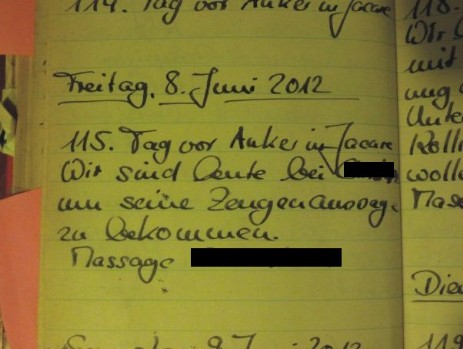 114. Tag vor Anker in Jacare
Freitag, 8. Juni 2012
115. Tag vor Anker in Jacare
Wir sind heute bei
um seine Zeugenaussage
zu bekommen.
Massage
9 Juni 2012
118.
Wir
mit
ung
Unter
wolle
Mass
Die
119